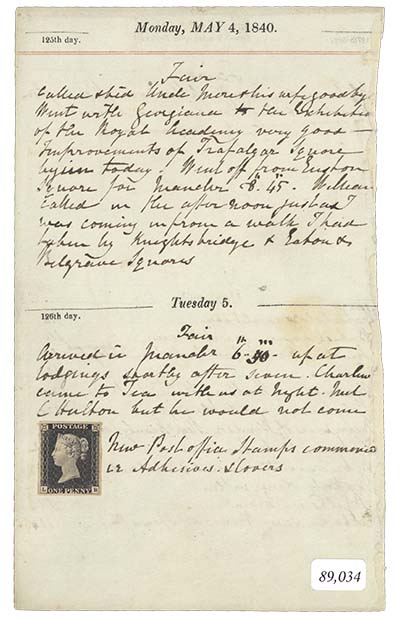 Monday, MAY 4, 1840.
125th day.
Fair
Called & bid Uncle More & his wife good by
Went with Georgiana to the Exhibition
of the Royal Academy very good —
Improvements of Trafalgar Square
begun today. Went off from Euston
Square for Manchr 8.45. William
Called in the afternoon just as I
was coming in from a walk I had
taken by Knightsbridge & Eaton &
Belgrave Squares
Tuesday 5.
126th day.
Fair
Arrived in Manchr 6- - up at
lodgings shortly after seven. Charles
came to Tea with us at Night. Met
C Hulton but he would not come
POSTAGE
L
ONE PENNY
New Post office Stamps commenced
ie Adhesives &
89,034